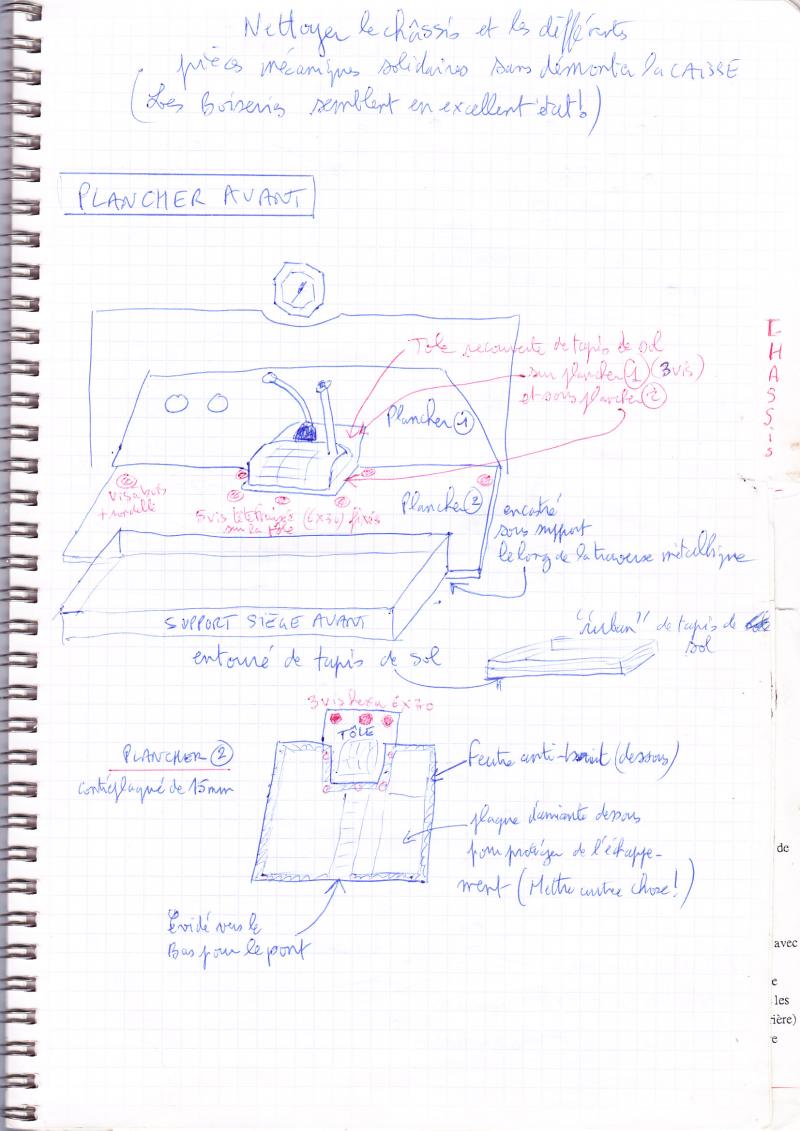 Nettoyer le châssis et les différents
pièces mécaniques solidaires sans démonter la CAISSE
(Les Boiseries semblent en excellent état!)
PLANCHER AVANT
CHASSIS
Tôle recouverte de tapis de sol
sur plancher 1 (3 vis)
et sous plancher 2
Plancher 1
Plancher 2
Vis à bois
+ rondelle
5 vis (6x30) fixés
sur la tôle
encastré
sous support
le long de la traverse métallique
SUPPORT SIÈGE AVANT
entouré de tapis de sol
"ruban" de tapis de
sol
3 vis hexa 6x70
TÔLE
PLANCHER 2
contreplaqué de 15mm
Feutre anti-bruit (dessous)
plaque d'amiante dessous
pour protéger de l'échappe-
ment (Mettre autre chose!)
Évidé vers le
Bas pour le pont
de
avec
e
les
rière)
e